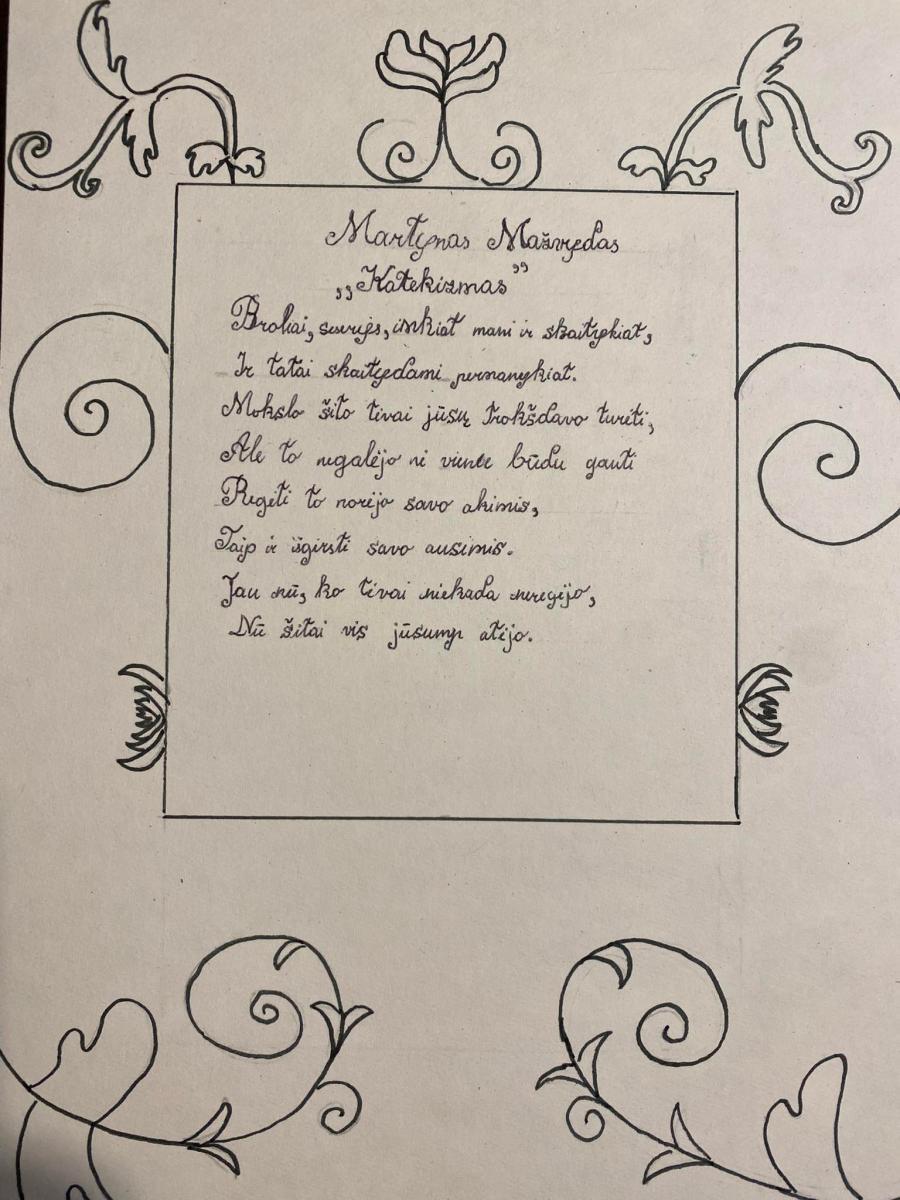 Martynas Mažvydas
„Katekizmas”
Broliai, seserys, imkiat mani ir skaitykiat,
Ir tatai skaitydami permanykiat.
Mokslo šito tėvai jūsų trokšdavo turėti,
Ale to negalėjo nė vienu būdu gauti
Regėti to norėjo savo akimis,
Taip ir išgirsti savo ausimis.
Jau nū, ko tėvai niekada neregėjo,
Nū šitai vis jūsump atėjo.